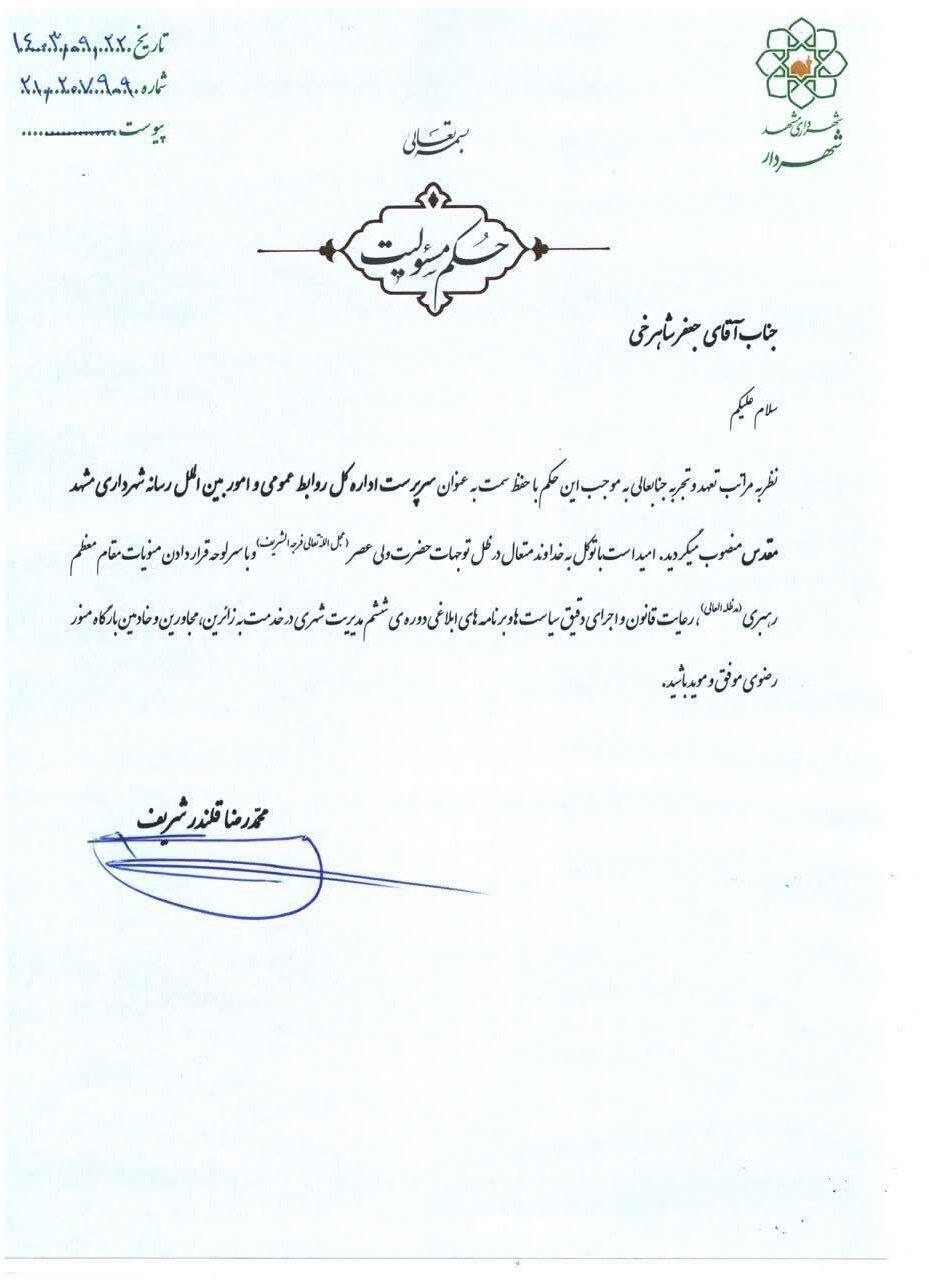 تاریخ ۱۴۰۳،۰۹،۲۲
شماره ۲۱،۲۰۷۹۰۹
پیوست
شهرداری مشهد
شهردار
بسمه تعالی
حکم مسئولیت
جناب آقای جعفر شاهرخی
سلام علیکم
نظر به مراتب تعهد و تجربه جنابعالی به موجب این حکم با حفظ سمت به عنوان سرپرست اداره کل روابط عمومی و امور بین الملل رسانه شهرداری مشهد
مقدس منصوب میگردید. امید است با توکل به خداوند متعال در ظل توجهات حضرت ولی عصر (عجل الله تعالی فرجه الشریف) و با سرلوحه قرار دادن منویات مقام معظم
رهبری (مدظله العالی)، رعایت قانون و اجرای دقیق سیاست ها و برنامه های ابلاغی دوره ی ششم مدیریت شهری در خدمت به زائرین، مجاورین و خادمین بارگاه منور
رضوی موفق و موید باشید.
محمدرضا قلندر شریف